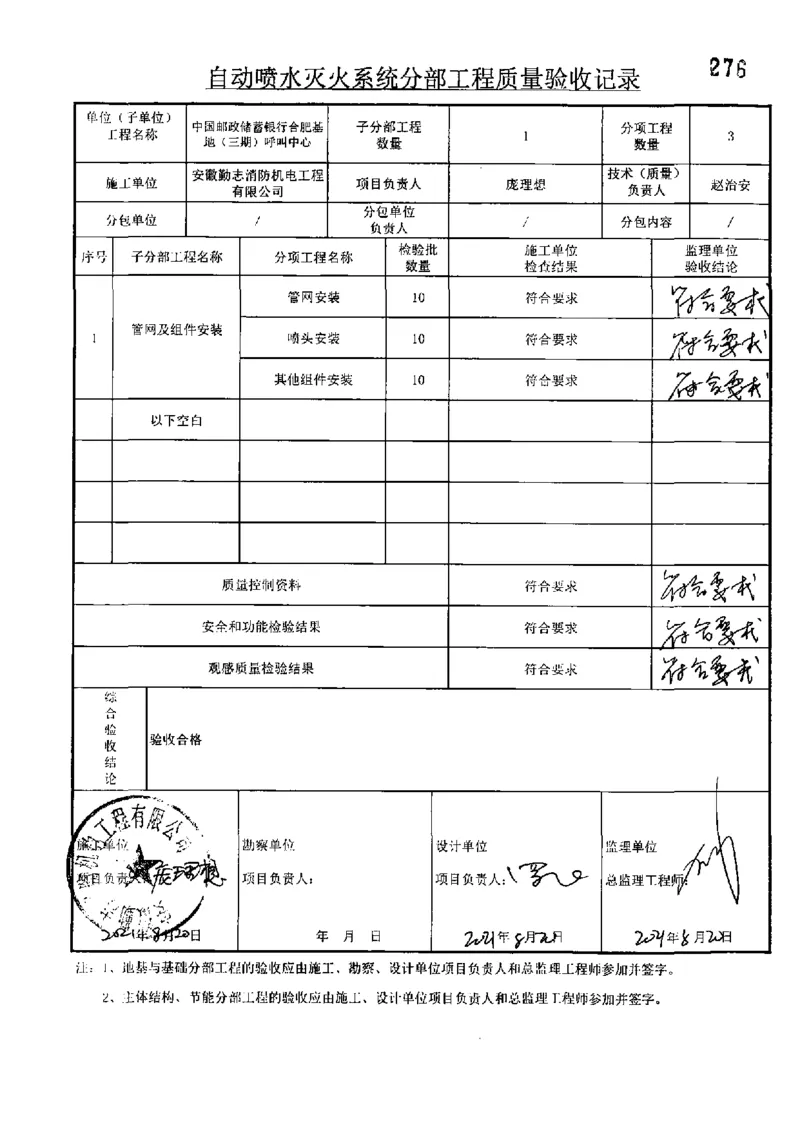 276
自动喷水灭火系统分部工程质量验收记录
单位（子单位）
工程名称
中国邮政储蓄银行合肥基
地（三期）呼叫中心
子分部工程
数量
1
分项工程
数量
3
施工单位
安徽勤志消防机电工程
有限公司
项目负责人
庞理想
技术（质量）
负责人
赵治安
分包单位
/
分包单位
负责人
/
分包内容
/
序号
子分部工程名称
分项工程名称
检验批
数量
施工单位
检查结果
监理单位
验收结论
1
管网及组件安装
管网安装
10
符合要求
符合要求
喷头安装
10
符合要求
符合要求
其他组件安装
10
符合要求
符合要求
以下空白
质量控制资料
符合要求
符合要求
安全和功能检验结果
符合要求
符合要求
观感质量检验结果
符合要求
符合要求
综
合
验
收
结
论
验收合格
工程有限公司
施工单位
项目负责人：庞理想
2021年8月20日
勘察单位
项目负责人：
年 月 日
设计单位
项目负责人：
2021年8月20日
监理单位
总监理工程师：
2021年8月20日
注：1、地基与基础分部工程的验收应由施工、勘察、设计单位项目负责人和总监理工程师参加并签字。
2、主体结构、节能分部工程的验收应由施工、设计单位项目负责人和总监理工程师参加并签字。